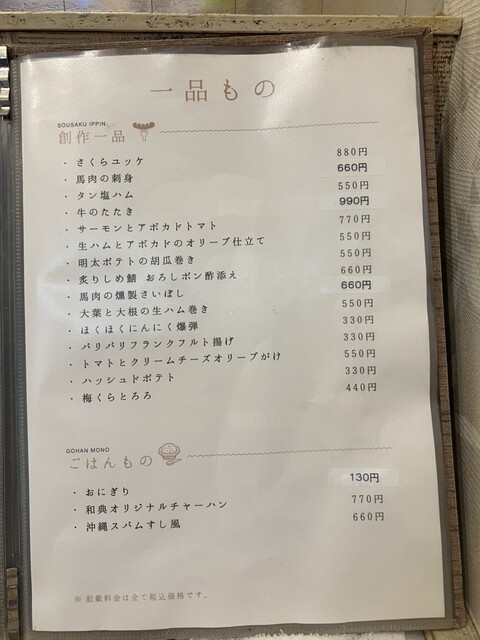 一品もの
SOUSAKU IPPIN
創作一品
・さくらユッケ 880円
・馬肉の刺身 660円
・タン塩ハム 550円
・牛のたたき 990円
・サーモンとアボカドトマト 770円
・生ハムとアボカドのオリーブ仕立て 550円
・明太ポテトの胡瓜巻き 550円
・炙りしめ鯖 おろしポン酢添え 660円
・馬肉の燻製さいぼし 660円
・大葉と大根の生ハム巻き 550円
・ほくほくにんにく爆弾 330円
・パリパリフランクフルト揚げ 330円
・トマトとクリームチーズオリーブがけ 550円
・ハッシュドポテト 330円
・梅くらとろろ 440円
GOHAN MONO
ごはんもの
・おにぎり 130円
・和典オリジナルチャーハン 770円
・沖縄スパムすし風 660円
※記載料金は全て税込価格です。